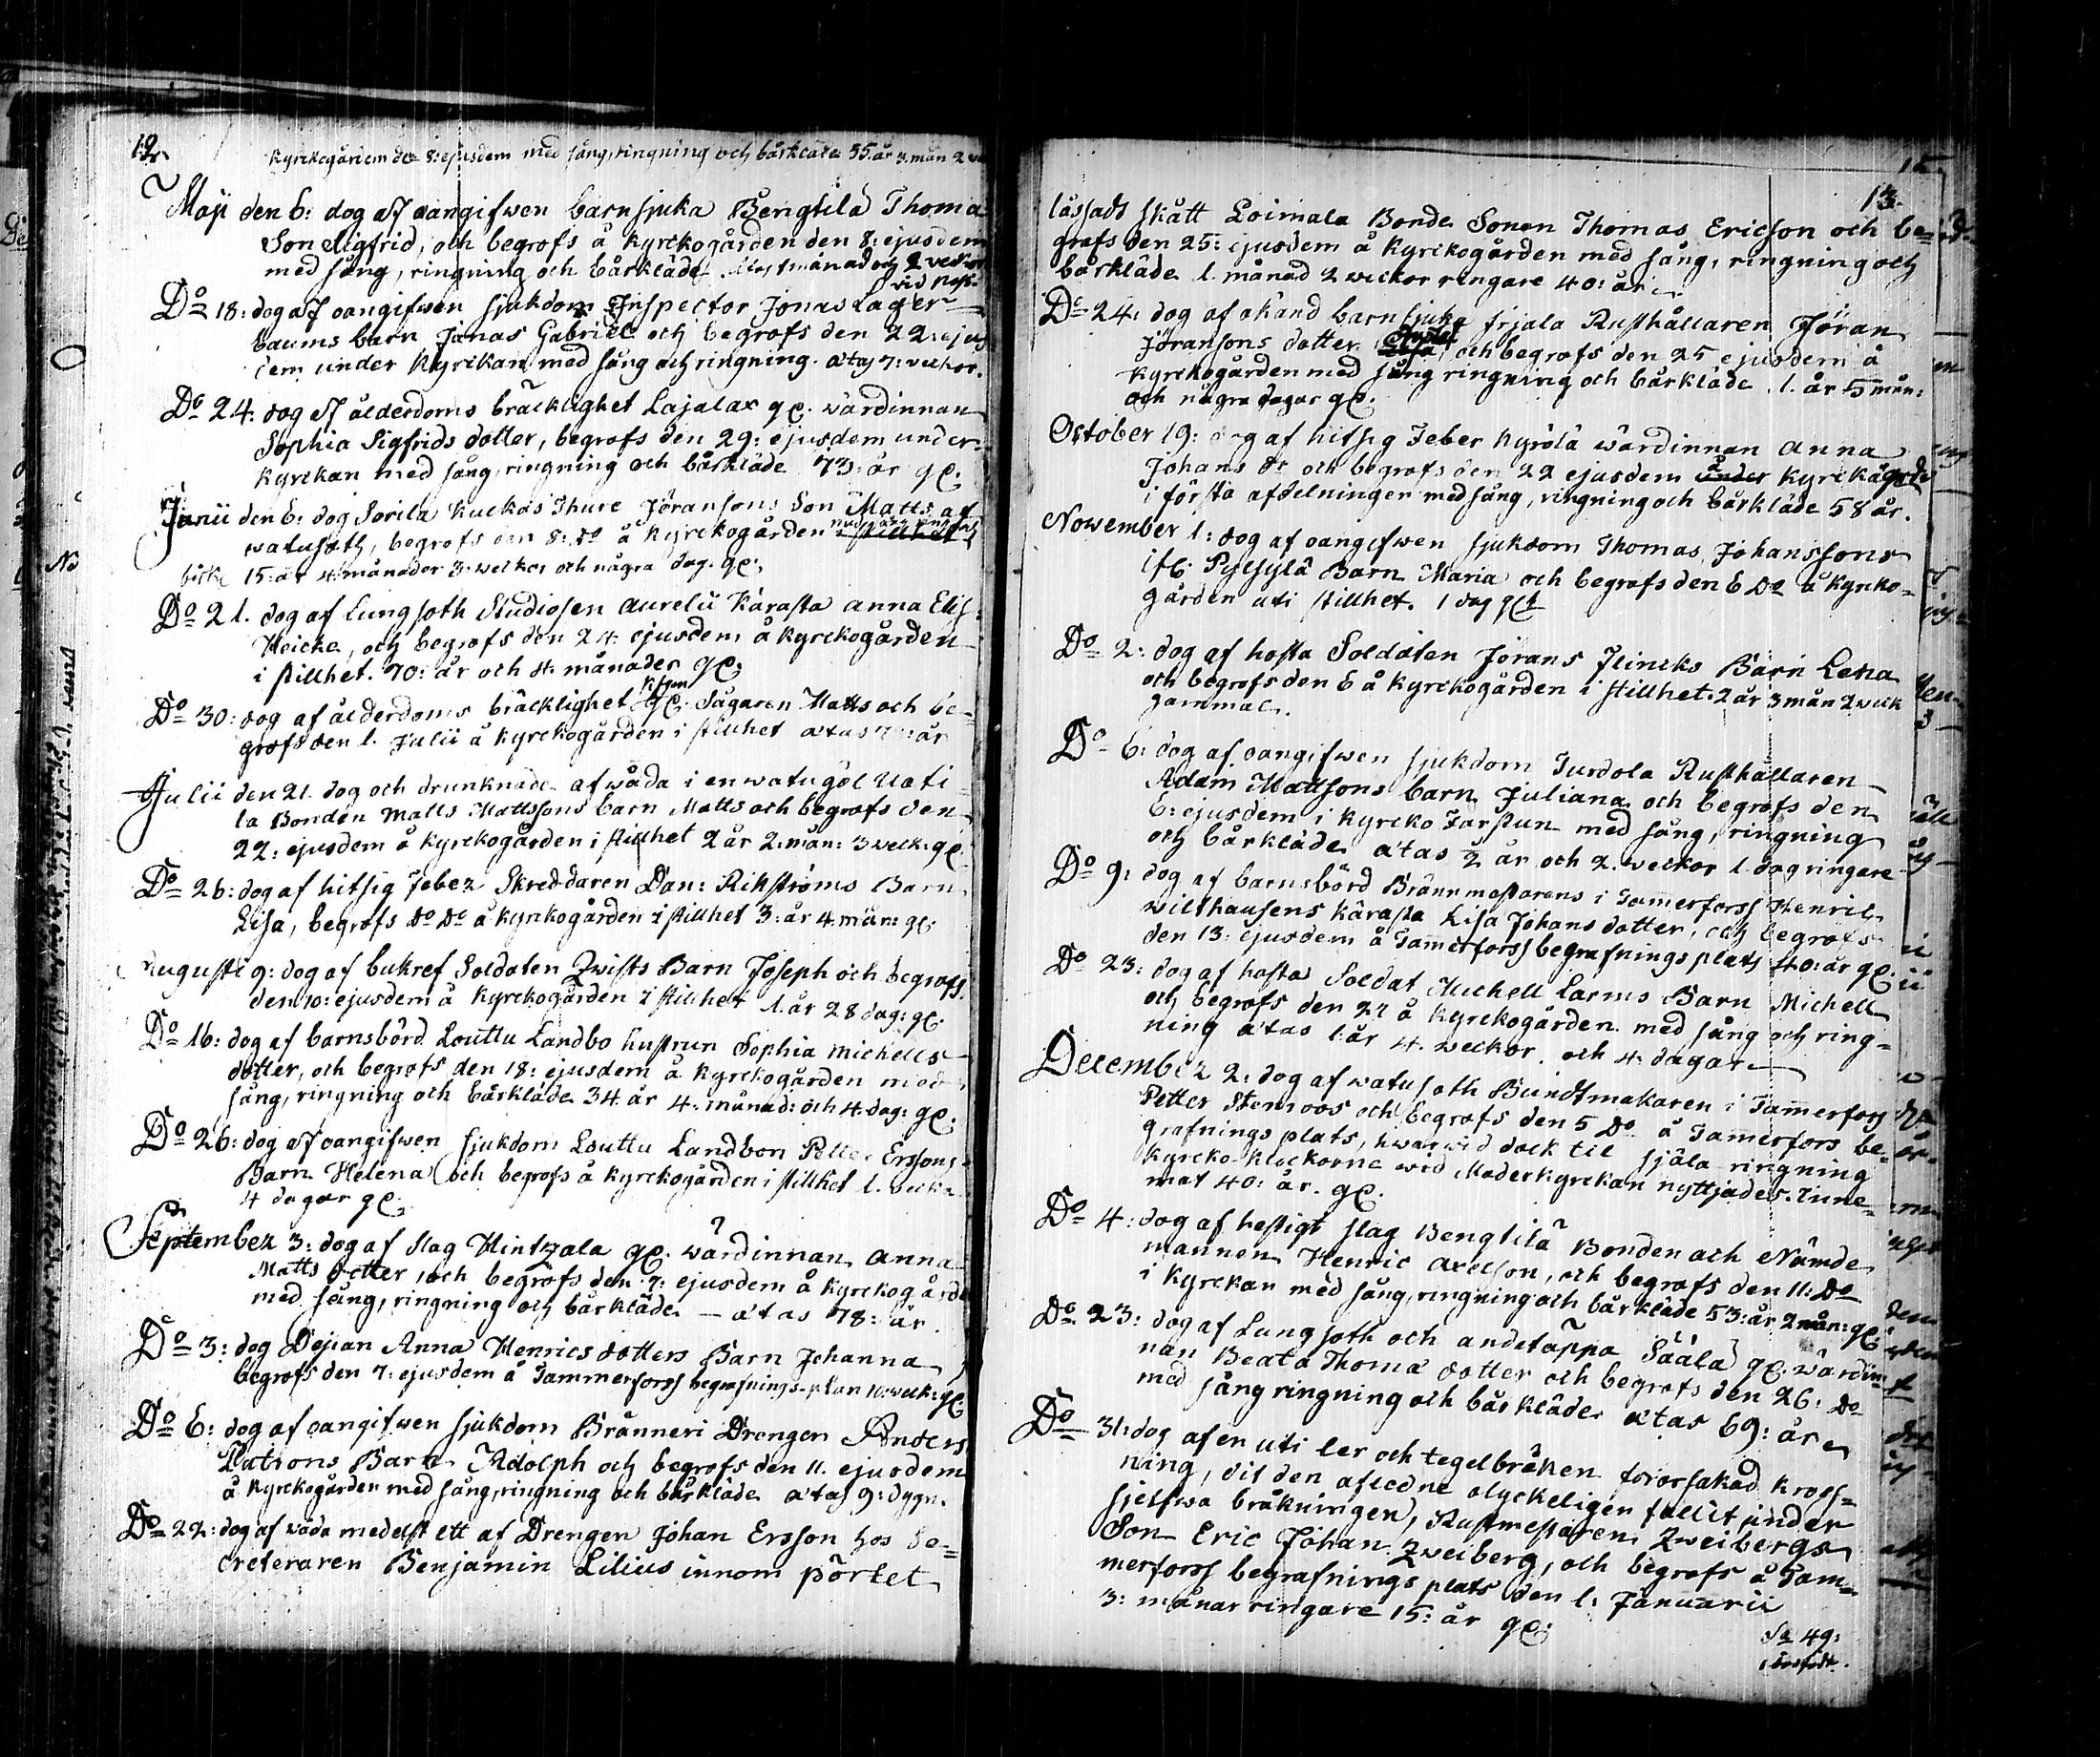 12.
Kyrckogården den 8: ejusdem med sång, ringning och bårkläde 55. år 3. mån 2
Maji den 6: dog af oangifwen barnsjuka Bengtilä Thoma
Son Sigfrid, och begrofs å kyrckogården den 8: ejusdem
med sång, ringning och bårkläde. 1 månad och 2 veckor
Do 18: dog af oangifwen sjukdom Inspector Jonas Lager-
baums barn Jonas Gabriel och begrofs den 22: ejus
dem under Kyrkan med sång och ringning. ætas 7: veckor.
Do 24: dog af ålderdoms bräcklighet Lajalax gl. wärdinnan
Sophia Sigfrids dotter, begrofs den 29: ejusdem under
kyrckan med sång, ringning och bårkläde 73: år gl.
Junii den 6: dog Sorila Kuckas Thure Jöransons Son Matts af
watusoth, begrofs den 8: Do å kyrckogården i stillhet
15: år 4 månader 3: weckor och några dag. gl.
Do 21. dog af Lungsoth Studiosen Aurelii Kärasta Anna Elis:
Heicke, och begrofs den 24. ejusdem å kyrckogården
i stillhet. 70: år och 4. månader gl.
Do 30: dog af ålderdoms bräcklighet gl. Sågaren Matts och be-
grofs den 1. Julii å kyrckogården i stillhet ætas år
Julii den 21. dog och drunknade af wåda i en watugöl Uoti-
la Bonden Matts Mattssons barn Matts och begrofs den
22: ejusdem å kyrckogården i stillhet 2 år 2: mån: 3 weck: gl.
Do 26: dog af hitsig feber Skreddaren Dan: Rikströms Barn
Lisa, begrofs Do Do å kyrckogården i stillhet 3: år 4. mån: gl.
Augusti 9: dog af bukref Soldaten Zwists Barn Joseph och begrofs
den 10: ejusdem å kyrckogården i stillhet 1. år 28 dag: gl.
Do 16: dog af barnsbörd Louttu Landbo hustrun Sophia Michells
dotter, och begrofs den 18: ejusdem å kyrckogården med
sång, ringning och bårkläde 34. år 4. månad: och 4. dag: gl.
Do 26: dog af oangifwen sjukdom Louttu Landbon Petter Erssons
Barn Helena och begrofs å kyrckogården i stillhet 1. vecka
4 dagar gl.
September 3: dog af slag Hintzala gl. wärdinnan Anna
Matts dotter, och begrofs den 7: ejusdem å kyrckogårde
med sång, ringning och bårkläde — ætas 78: år.
Do 3: dog Pejian Anna Henrics dotters Barn Johanna
begrofs den 7: ejusdem å Tammerforss begrafnings-plan 10: weck: gl.
Do 6: dog af oangifwen sjukdom Bränneri Drengen Anders
Patrons Barn Adolph och begrofs den 11. ejusdem
å kyrckogården med sång, ringning och bårkläde ætas 9: dygn.
Do 22: dog af våda medelst ett af Drengen Johan Ersson hos Se-
creteraren Benjamin Lilius innom pörtet
15.
13.
låssadt skått Loimala Bonde Sonen Thomas Ericson och be-
grofs den 25: ejusdem å kyrckogården med sång, ringning och
bårkläde 1. månad 2 weckor ringare 40: år.
Do 24: dog af okänd barnsjuka Irjala Rusthållaren Jöran
Jöransons dotter och begrofs den 25 ejusdem å
kyrckogården med sång ringning och bårkläde. 1. år 5 mån:
och några dagar gl.
October 19: dog af hitsig Feber Kyrölä wärdinnan Anna
Johans Dr och begrofs den 22 ejusdem å Kyrckogårde
i första afdelningen med sång, ringning och bårkläde 58 år.
Nowember 1: dog af oangifwen sjukdom Thomas Johanssons
Pylsylä Barn Maria och begrofs den 6 Do å kyrcko-
gården uti stillhet. 1 dag gl
Do 2: dog af hosta Soldaten Jörans Flincks Barn Lena
och begrofs den 6 å kyrckogården i stillhet. 2 år 3 mån 2 weck
gammal.
Do 6: dog af oangifwen sjukdom Turdola Rusthållaren
Adam Mattsons barn Juliana och begrofs den
6: ejusdem i kyrcko Farstun med sång, ringning
och bårkläde ætas ½ år och 2. weckor 1. dag ringare
Do 9: dog af barnsbörd Brännmästarens i Tammerforss Henric
Wilthausens kärasta Lisa Johans dotter, och begrofs
den 13: ejusdem å Tammerforss begrafnings plats 40: år gl.
Do 23: dog af hosta Soldat Michell Larms Barn Michell
och begrofs den 27 å kyrckogården med sång och ring-
ning ætas 1: år 4. weckor och 4. dagar
December 2: dog af watusoth Bundtmakaren i Tammerfors
Petter Stenroos och begrofs den 5 Do å Tammerfors be-
grafnings plats, hwarwid dock til själa ringning
kyrcko klockorne wid Moderkyrckan nyttjades. Inne-
mot 40: år. gl.
Do 4: dog af hastigt slag Bengtilä Bonden och Nämde-
mannen Henric Axelson, och begrofs den 11: Do
i Kyrckan med sång, ringning och bårkläde 53: år 2 mån: gl.
Do 23: dog af Lungsoth och andetäppa Säälä gl. wärdin-
nan Beata Thoma dotter och begrofs den 26: Do
med sång ringning och bårkläde ætas 69: år
Do 31: dog af en uti ler och tegelbråken förorsakad kross-
ning, dit den afledne olyckeligen fallit under
sjelfwa bråkningen, Rustmestaren Zweibergs
Son Eric Johan Zweiberg, och begrofs å Tam-
merforss begrafnings plats den 1. Januarii
3: månar ringare 15: år gl.
Sa 49: